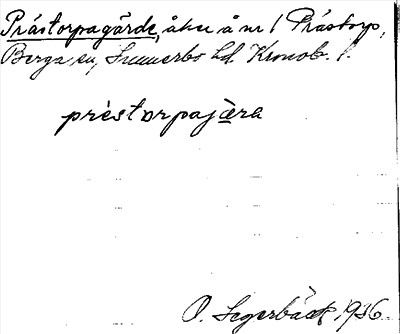 Prästorpagärde, åker å nr 1 Prästorp,
Berga sn, Sunnerbo hd. Kronob. l.
prèstorpajæ̀ra
O. Segerbäck 1936